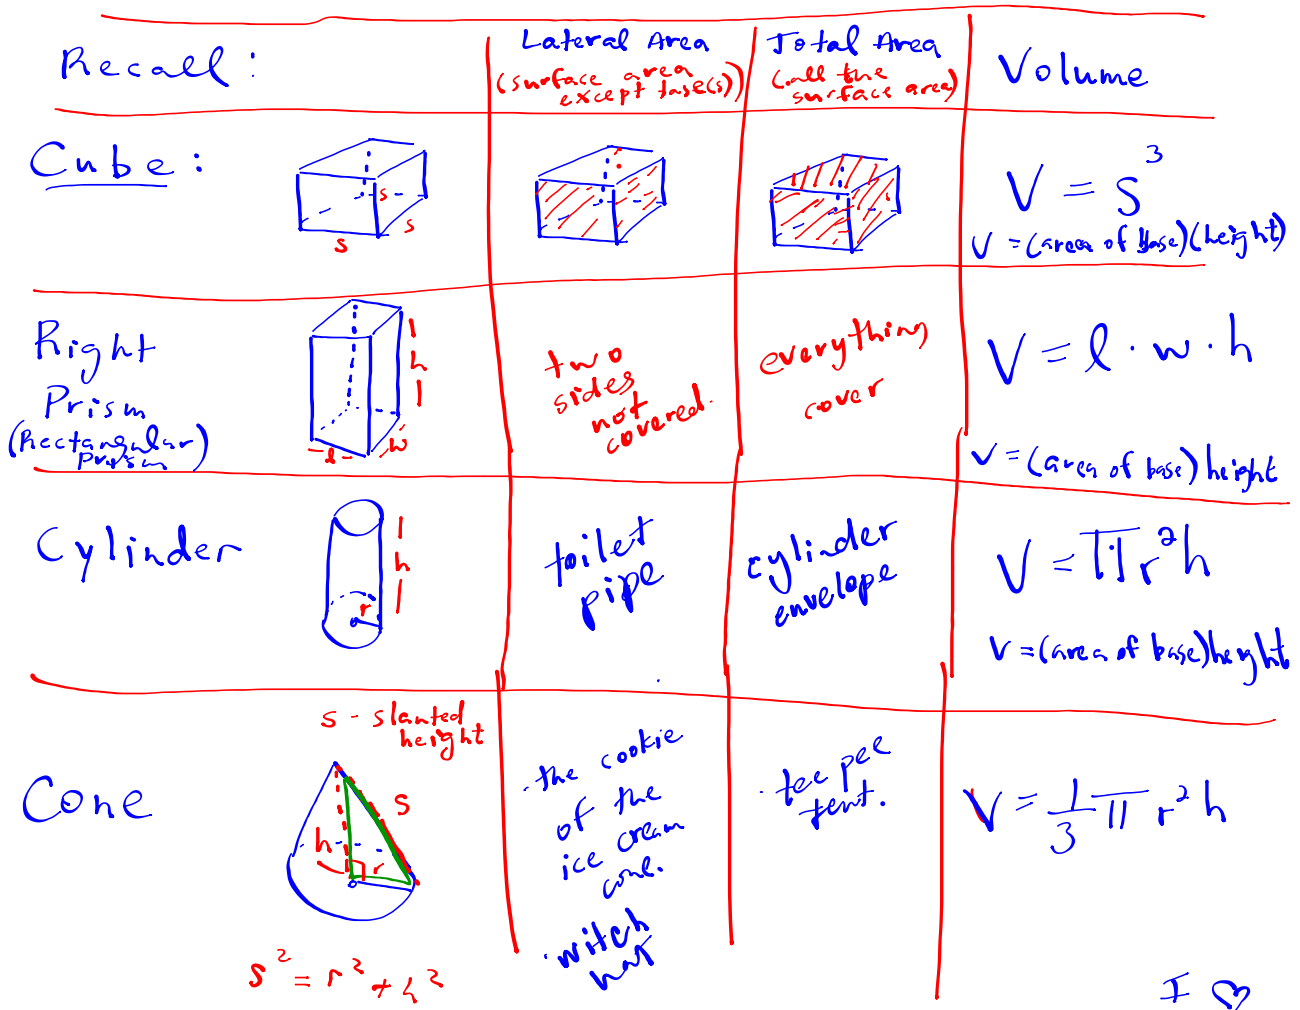 Recall:
Lateral Area
(surface area
except base(s))
Total Area
(all the
surface area)
Volume
Cube:
s
s
s
V = s³
V = (area of base)(height)
Right
Prism
(Rectangular
Prism)
h
l
w
two
sides
not
covered.
everything
cover
V = l · w · h
V = (area of base) height
Cylinder
h
r
toilet
pipe
cylinder
envelope
V = πr²h
V = (area of base) height
Cone
s - slanted
height
s
h
r
s² = r² + h²
· the cookie
of the
ice cream
cone.
· witch
hat
· tee pee
tent.
V = 1/3 π r² h
I ♡